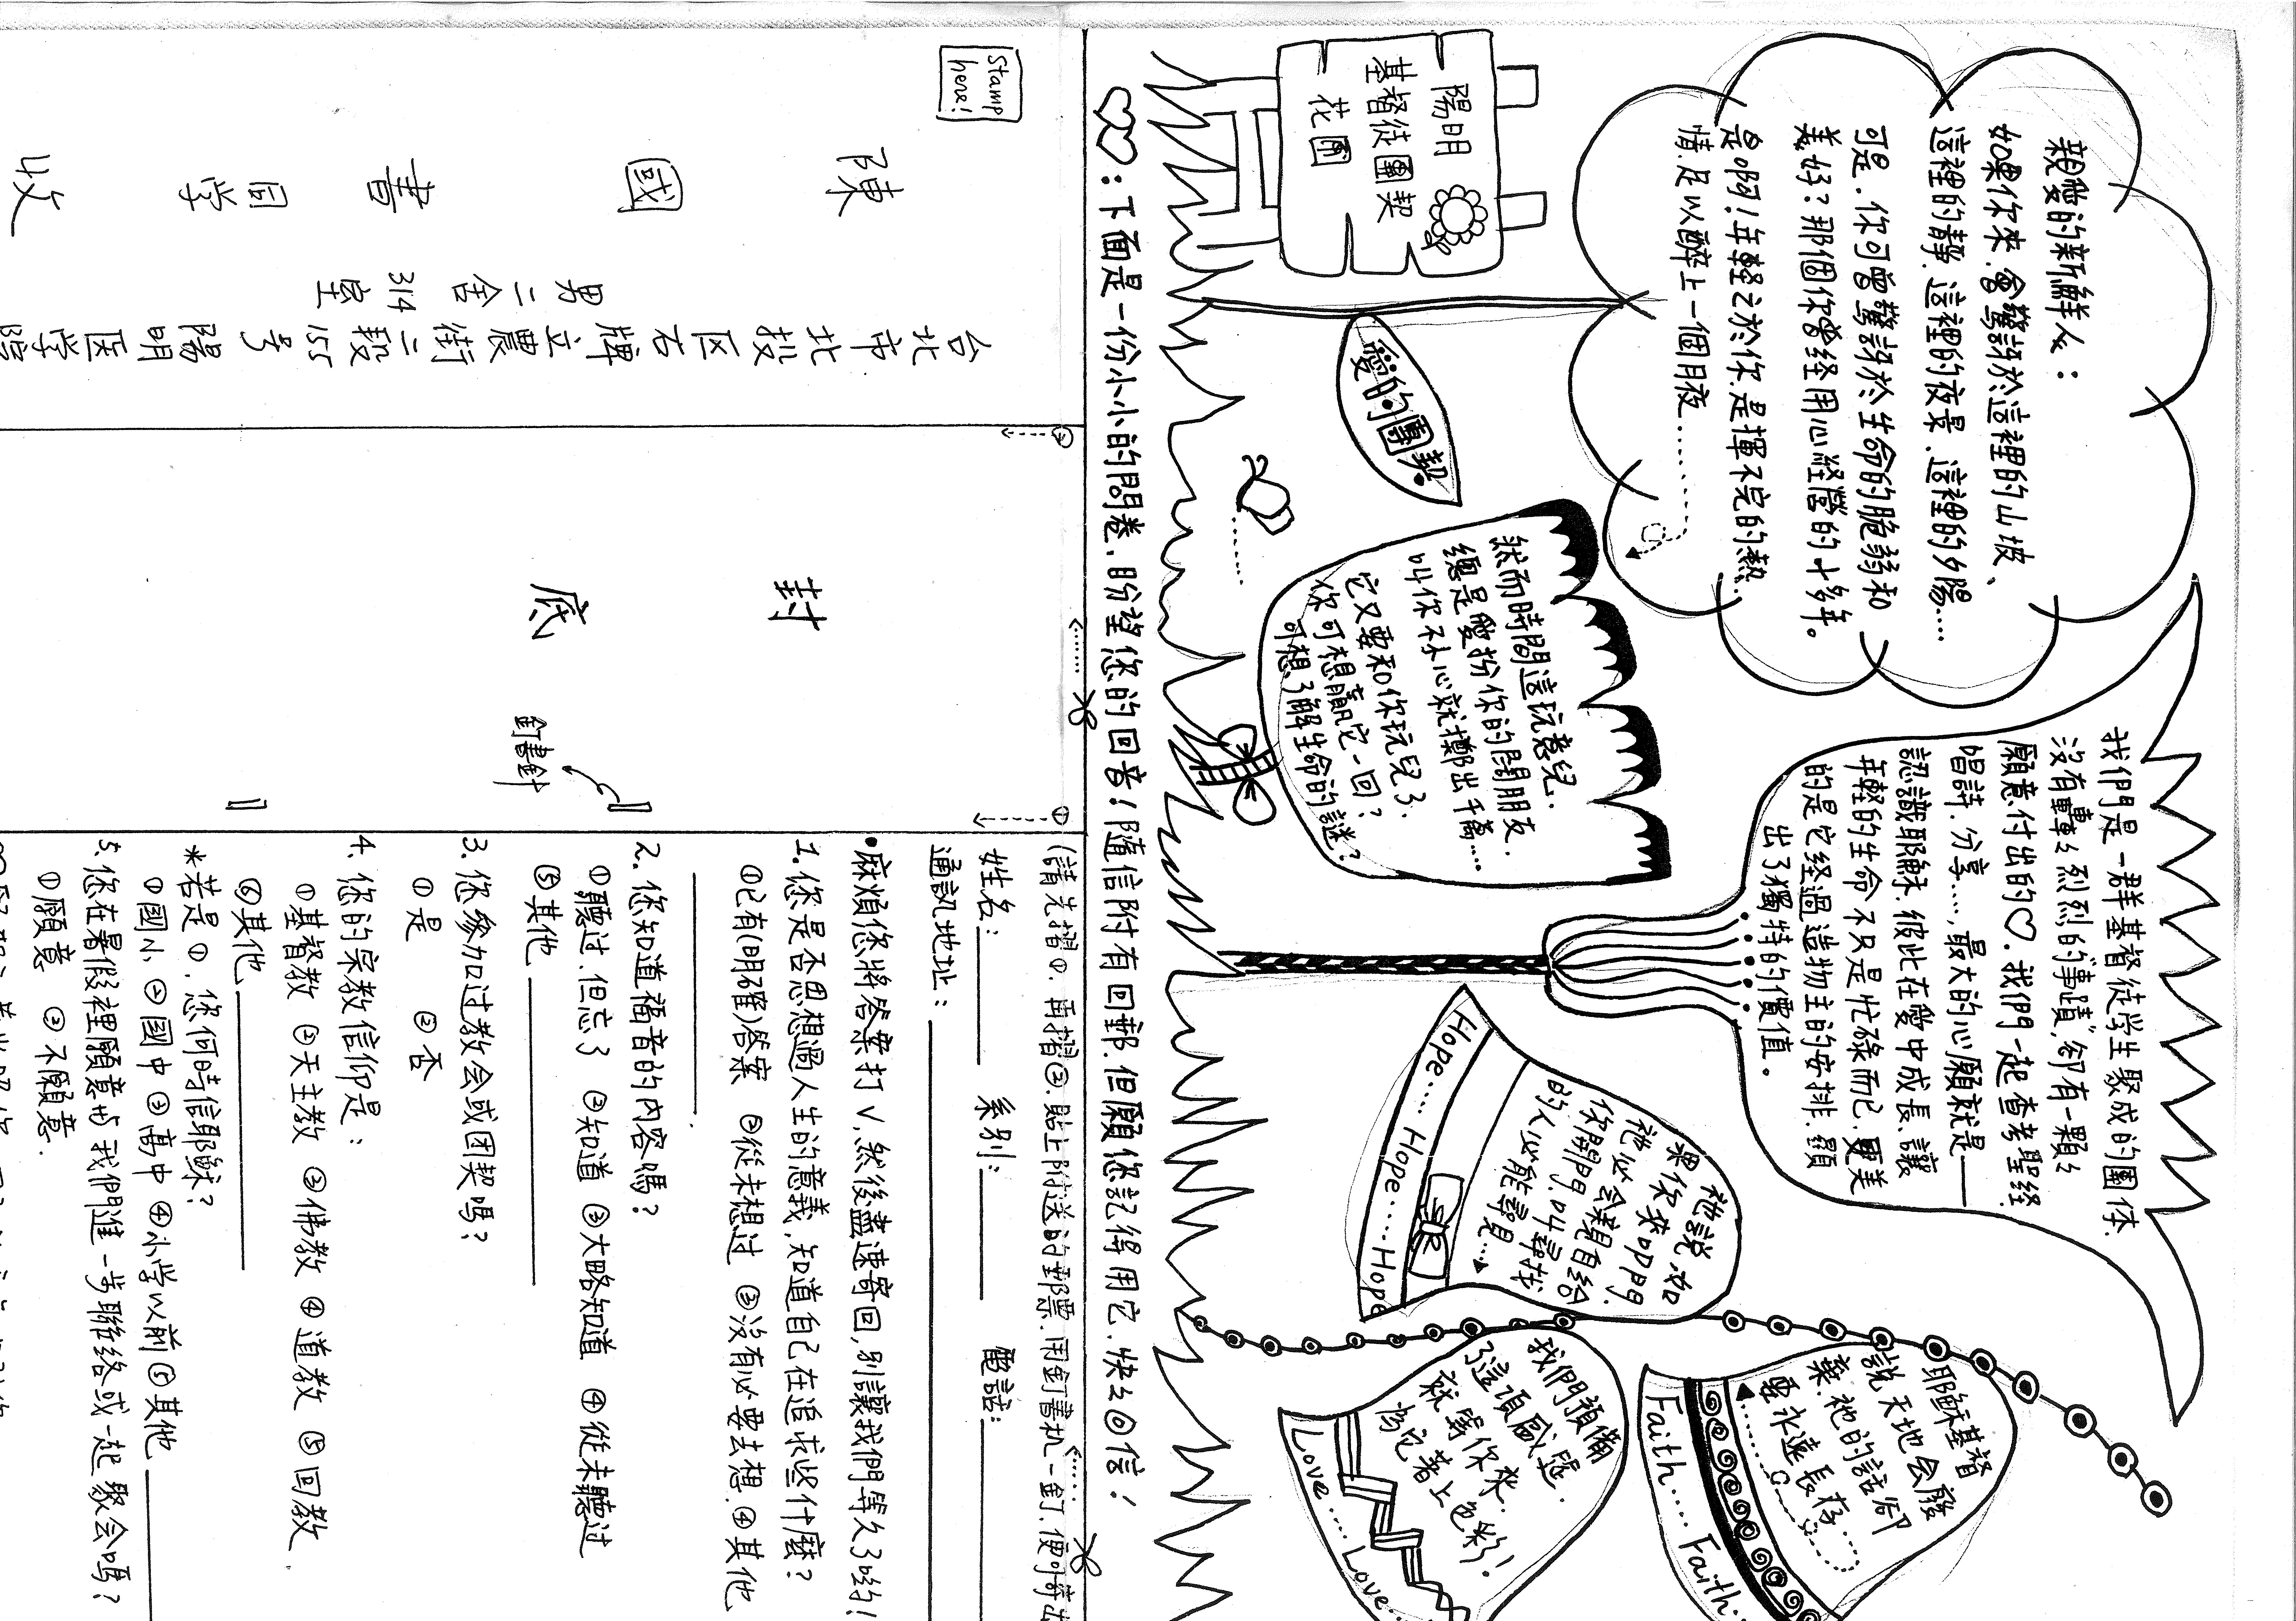 親愛的新鮮人：
如果你來.會驚訝於這裡的山坡、
這裡的靜.這裡的夜景.這裡的夕陽....
可是.你可曾驚訝於生命的脆弱和
美好？那個你曾經用心經營的十多年。
是啊！年輕之於你.是揮不完的熱
情.足以醉上一個月夜.........
陽明
基督徒團契
花園
愛的團契
然而時間這玩意兒.
總是愛扮你的鬧朋友.
叫你不小心就擲出千萬....
它又要和你玩兒了.
你可想贏它一回？
可想了解生命的謎？
我們是一群基督徒学生聚成的團体.
沒有轟轟烈烈的"事蹟",卻有一顆々
願意付出的♡.我們一起查考聖経.
唱詩.分享...,最大的心願就是——
認識耶穌.彼此在愛中成長.讓
年輕的生命不只是忙碌而已.更美
的是它経過造物主的安排.顯
出了獨特的價值。
祂說.如
果你來叩門.
祂必会親自給
你開門.叫尋找
的人必能尋見...
Hope....Hope....Hope
耶穌基督
說天地会廢
棄.祂的話卻
要永遠長存
Faith....Faith..
我們預備
了這頂園.是
就等你來.
為它著上色彩！
Love....Love...
♡♡：下面是一份小小的問卷.盼望您的回音！隨信附有回郵.但願您記得用它.快々回信！
Stamp here!
台北市北投区石牌立農街二段155号陽明医学
男二舍314室
陳國書同学收
封底
釘書針
①
②
(請先摺①.再摺②.貼上附送的郵票.用釘書机一釘.便可寄出
姓名： 系别： 電話：
通訊地址：
•麻煩您將答案打∨,然後盡速寄回,别讓我們等久了喲！
1.您是否思想過人生的意義,知道自己在追求些什麼？
①已有(明確)答案 ②從未想过 ③沒有必要去想 ④其他
2.您知道福音的内容嗎？
①聽过.但忘了 ②知道 ③大略知道 ④從未聽过
⑤其他
3.您参加过教会或团契嗎？
①是 ②否
4.您的宗教信仰是：
①基督教 ②天主教 ③佛教 ④道教 ⑤回教
⑥其他
*若是①.您何時信耶穌？
①國小 ②國中 ③高中 ④小学以前 ⑤其他
5.您在暑假裡願意与我們進一步聯絡或一起聚会嗎？
①願意 ②不願意.